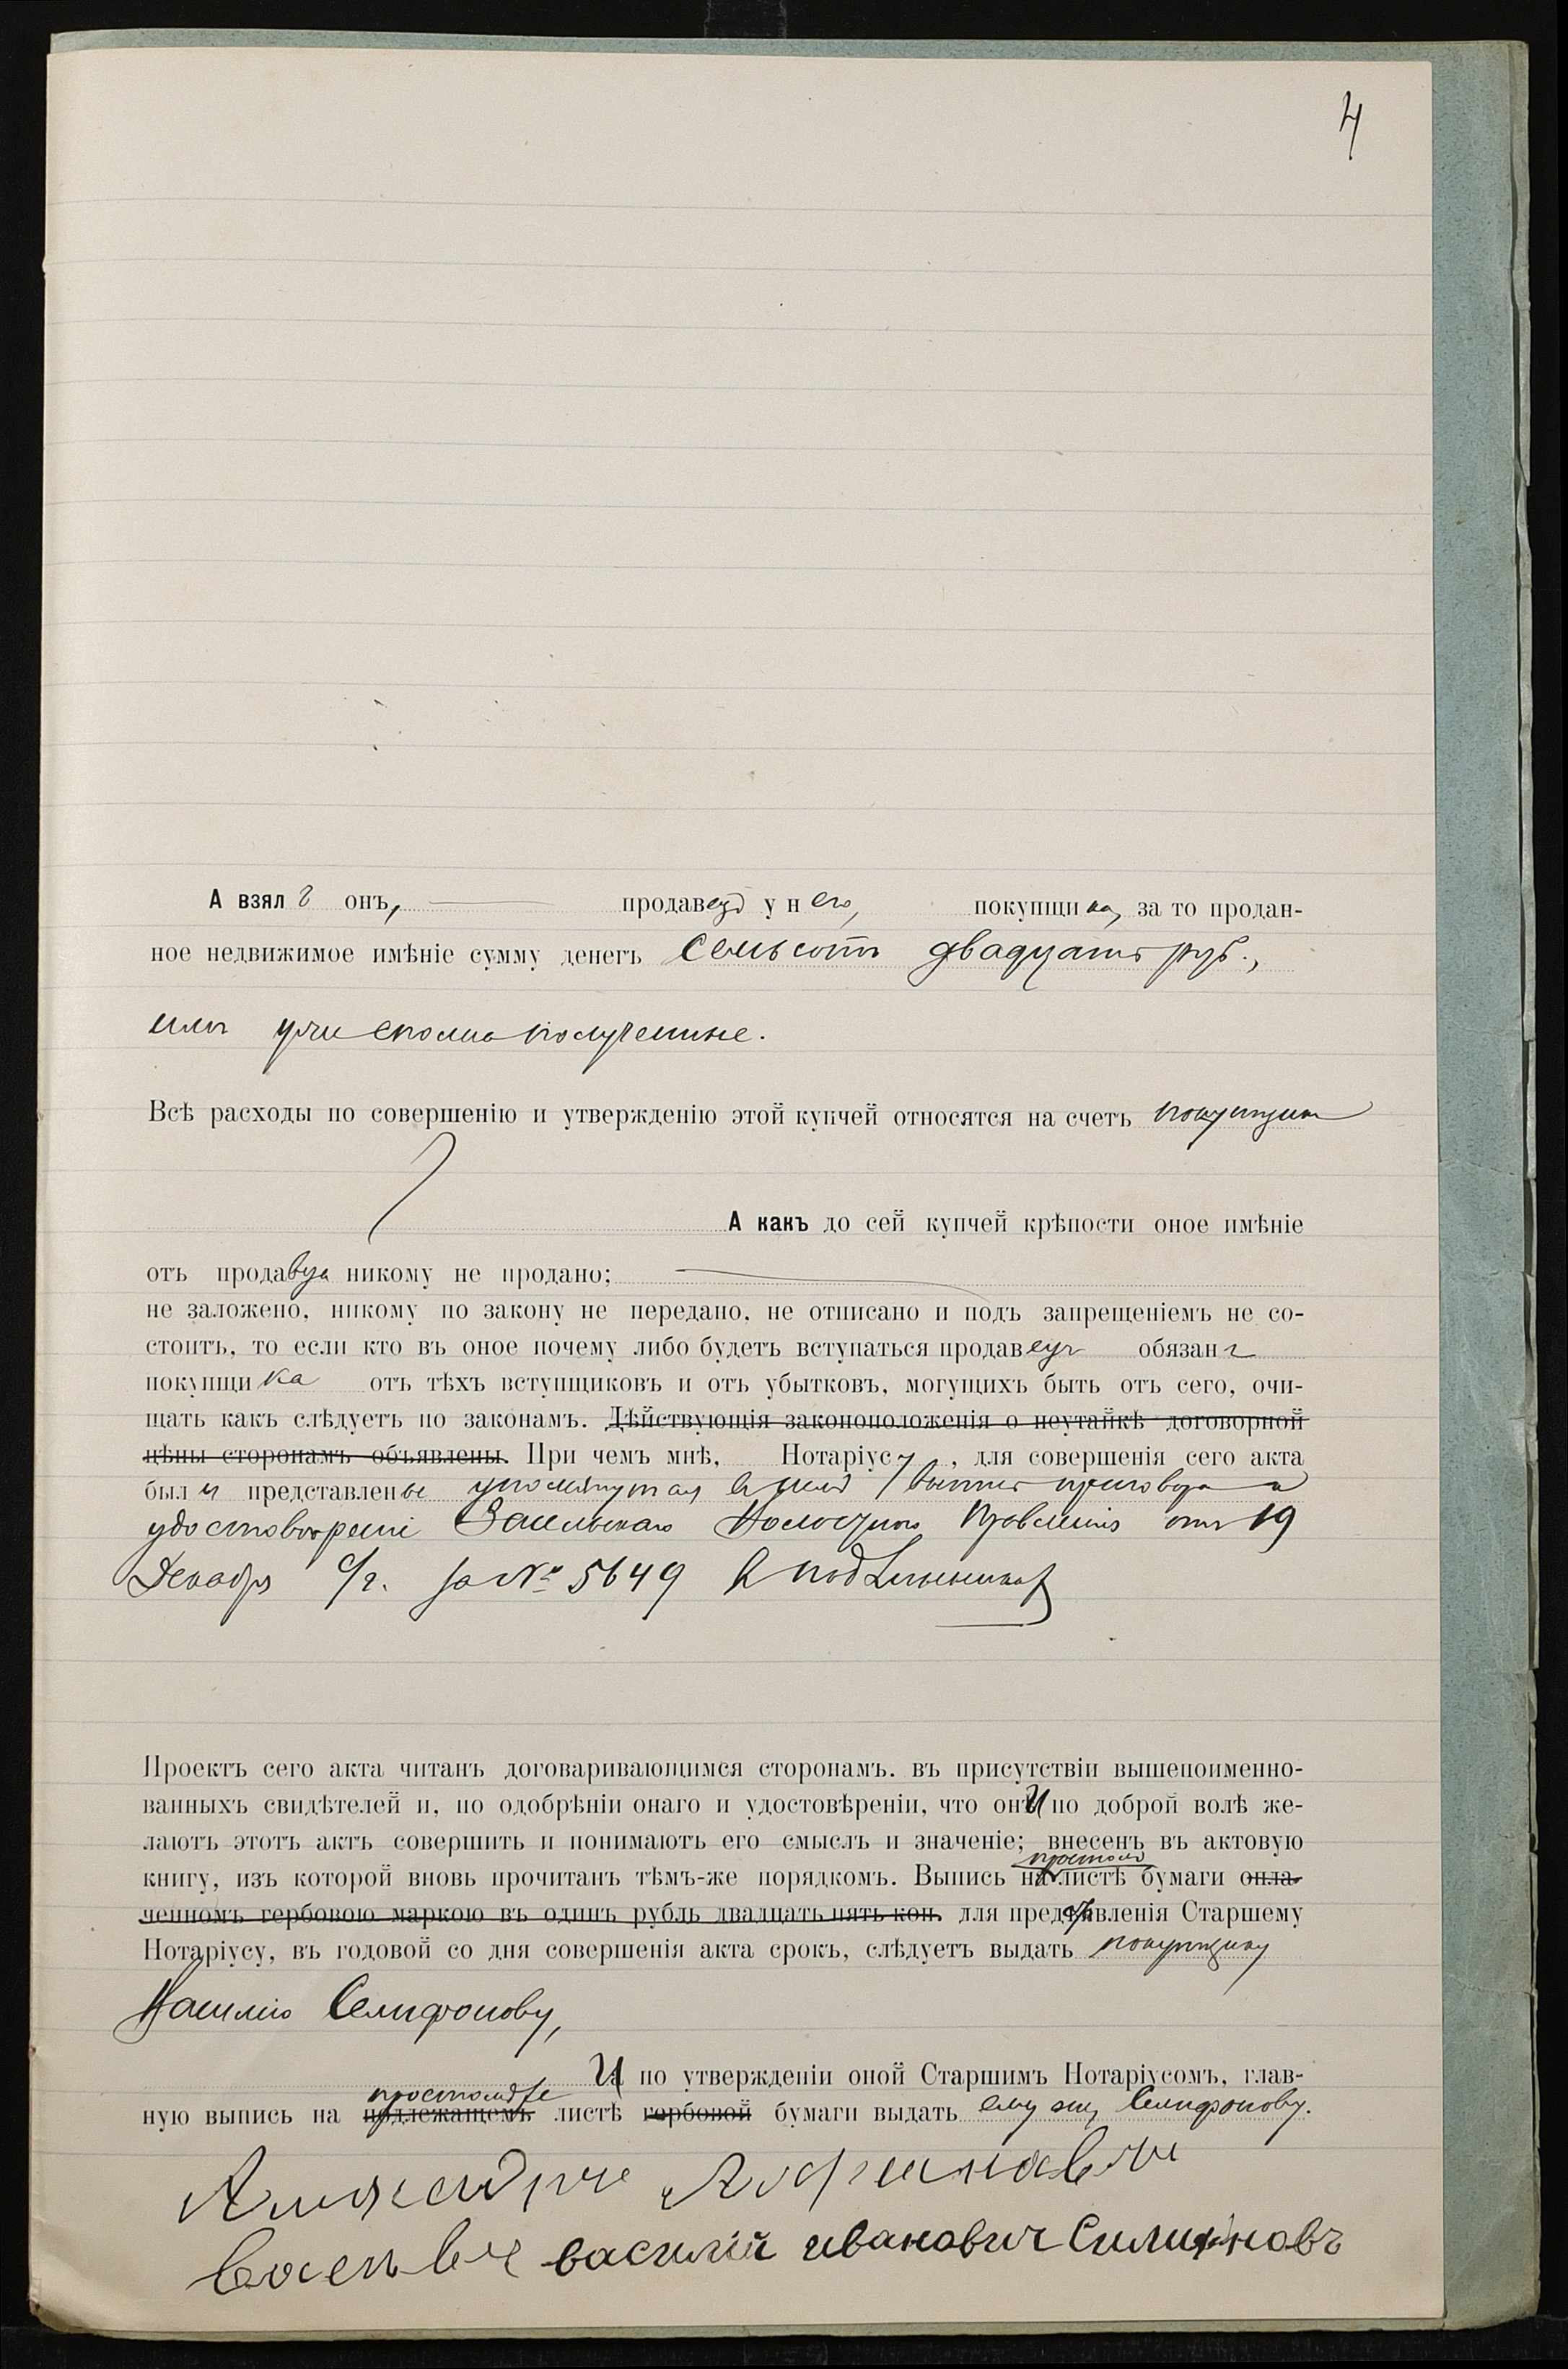 4
А взялъ онъ, продавецъ у него, покупщика, за то продан-
ное недвижимое имѣніе сумму денегъ Семьсотъ двадцать руб.,
имъ уже сполна полученные.
Всѣ расходы по совершенію и утвержденію этой купчей относятся на счетъ покупщика
А какъ до сей купчей крѣпости оное имѣніе
отъ продавца никому не продано;
не заложено, никому по закону не передано, не отписано и подъ запрещеніемъ не со-
стоитъ, то если кто въ оное почему либо будетъ вступаться продавецъ обязанъ
покупщика отъ тѣхъ вступщиковъ и отъ убытковъ, могущихъ быть отъ сего, очи-
щать какъ слѣдуетъ по законамъ. Дѣйствующія законоположенія о неутайкѣ договорной
цѣны сторонамъ объявлены. При чемъ мнѣ, Нотаріусу, для совершенія сего акта
были представлены упомянутая выше выпись приговора и
удостовѣреніе Волостного Правленія отъ 19
Декабря с/г. за № 5649 въ подлинникѣ
Проектъ сего акта читанъ договаривающимся сторонамъ. въ присутствіи вышепоименно-
ванныхъ свидѣтелей и, по одобрѣніи онаго и удостовѣреніи, что они по доброй волѣ же-
лаютъ этотъ актъ совершить и понимаютъ его смыслъ и значеніе; внесенъ въ актовую
простомъ
книгу, изъ которой вновь прочитанъ тѣмъ-же порядкомъ. Выпись на листѣ бумаги опла-
ченномъ гербовою маркою въ одинъ рубль двадцать пять коп. для представленія Старшему
Нотаріусу, въ годовой со дня совершенія акта срокъ, слѣдуетъ выдать покупщику
Василію Селифонову,
И по утвержденіи оной Старшимъ Нотаріусомъ, глав-
простомъ же
ную выпись на подлежащемъ листѣ гербовой бумаги выдать ему же, Селифонову.
василій ивановичъ Силифановъ